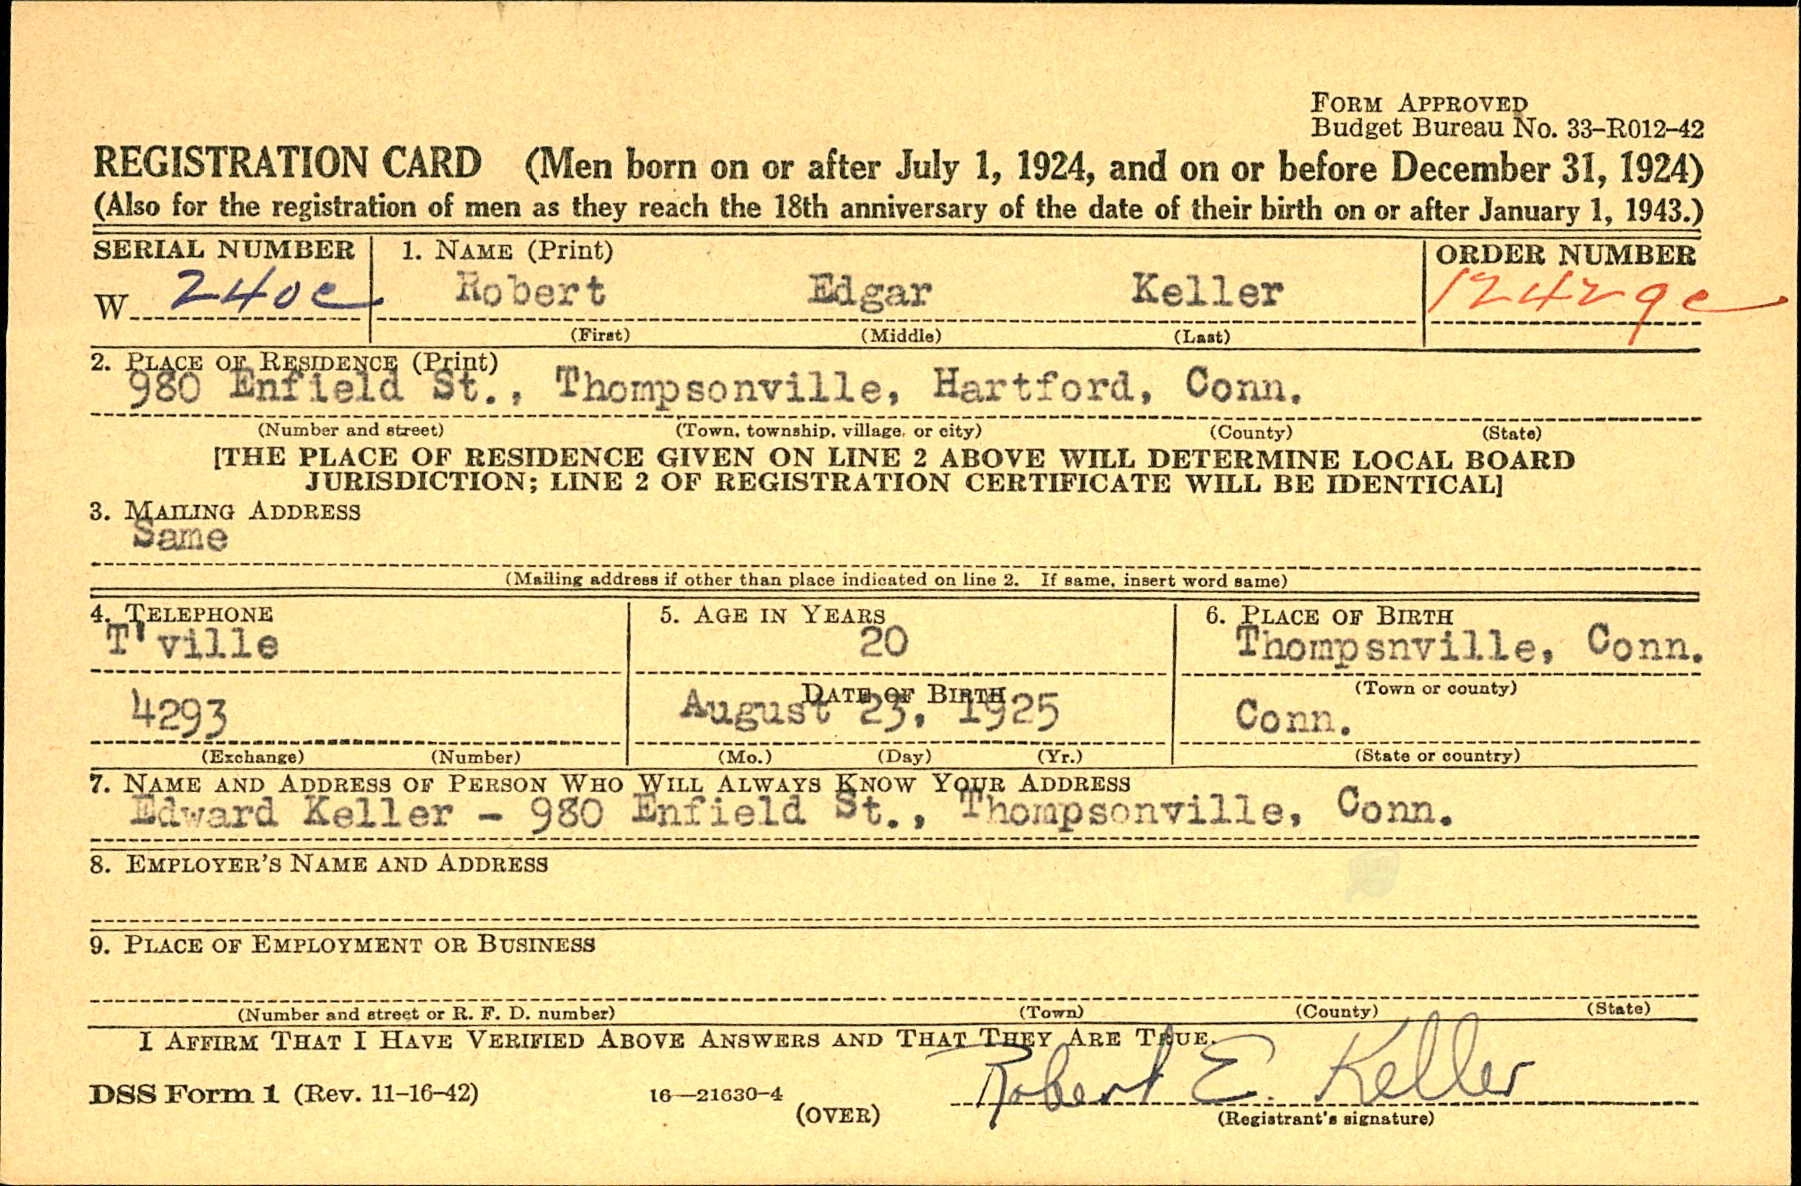 FORM APPROVED
Budget Bureau No. 33-R012-42
REGISTRATION CARD (Men born on or after July 1, 1924, and on or before December 31, 1924)
(Also for the registration of men as they reach the 18th anniversary of the date of their birth on or after January 1, 1943.)
SERIAL NUMBER 1. NAME (Print) ORDER NUMBER
W 240e Robert Edgar Keller 12429e
(First) (Middle) (Last)
2. PLACE OF RESIDENCE (Print)
980 Enfield St., Thompsonville, Hartford, Conn.
(Number and street) (Town, township, village, or city) (County) (State)
[THE PLACE OF RESIDENCE GIVEN ON LINE 2 ABOVE WILL DETERMINE LOCAL BOARD
JURISDICTION; LINE 2 OF REGISTRATION CERTIFICATE WILL BE IDENTICAL]
3. MAILING ADDRESS
Same
(Mailing address if other than place indicated on line 2. If same, insert word same)
4. TELEPHONE 5. AGE IN YEARS 6. PLACE OF BIRTH
T'ville 20 Thompsnville, Conn.
DATE OF BIRTH (Town or county)
4293 August 23, 1925 Conn.
(Exchange) (Number) (Mo.) (Day) (Yr.) (State or country)
7. NAME AND ADDRESS OF PERSON WHO WILL ALWAYS KNOW YOUR ADDRESS
Edward Keller - 980 Enfield St., Thompsonville, Conn.
8. EMPLOYER'S NAME AND ADDRESS
9. PLACE OF EMPLOYMENT OR BUSINESS
(Number and street or R. F. D. number) (Town) (County) (State)
I AFFIRM THAT I HAVE VERIFIED ABOVE ANSWERS AND THAT THEY ARE TRUE.
DSS Form 1 (Rev. 11-16-42) 16—21630-4 Robert E. Keller
(OVER) (Registrant's signature)